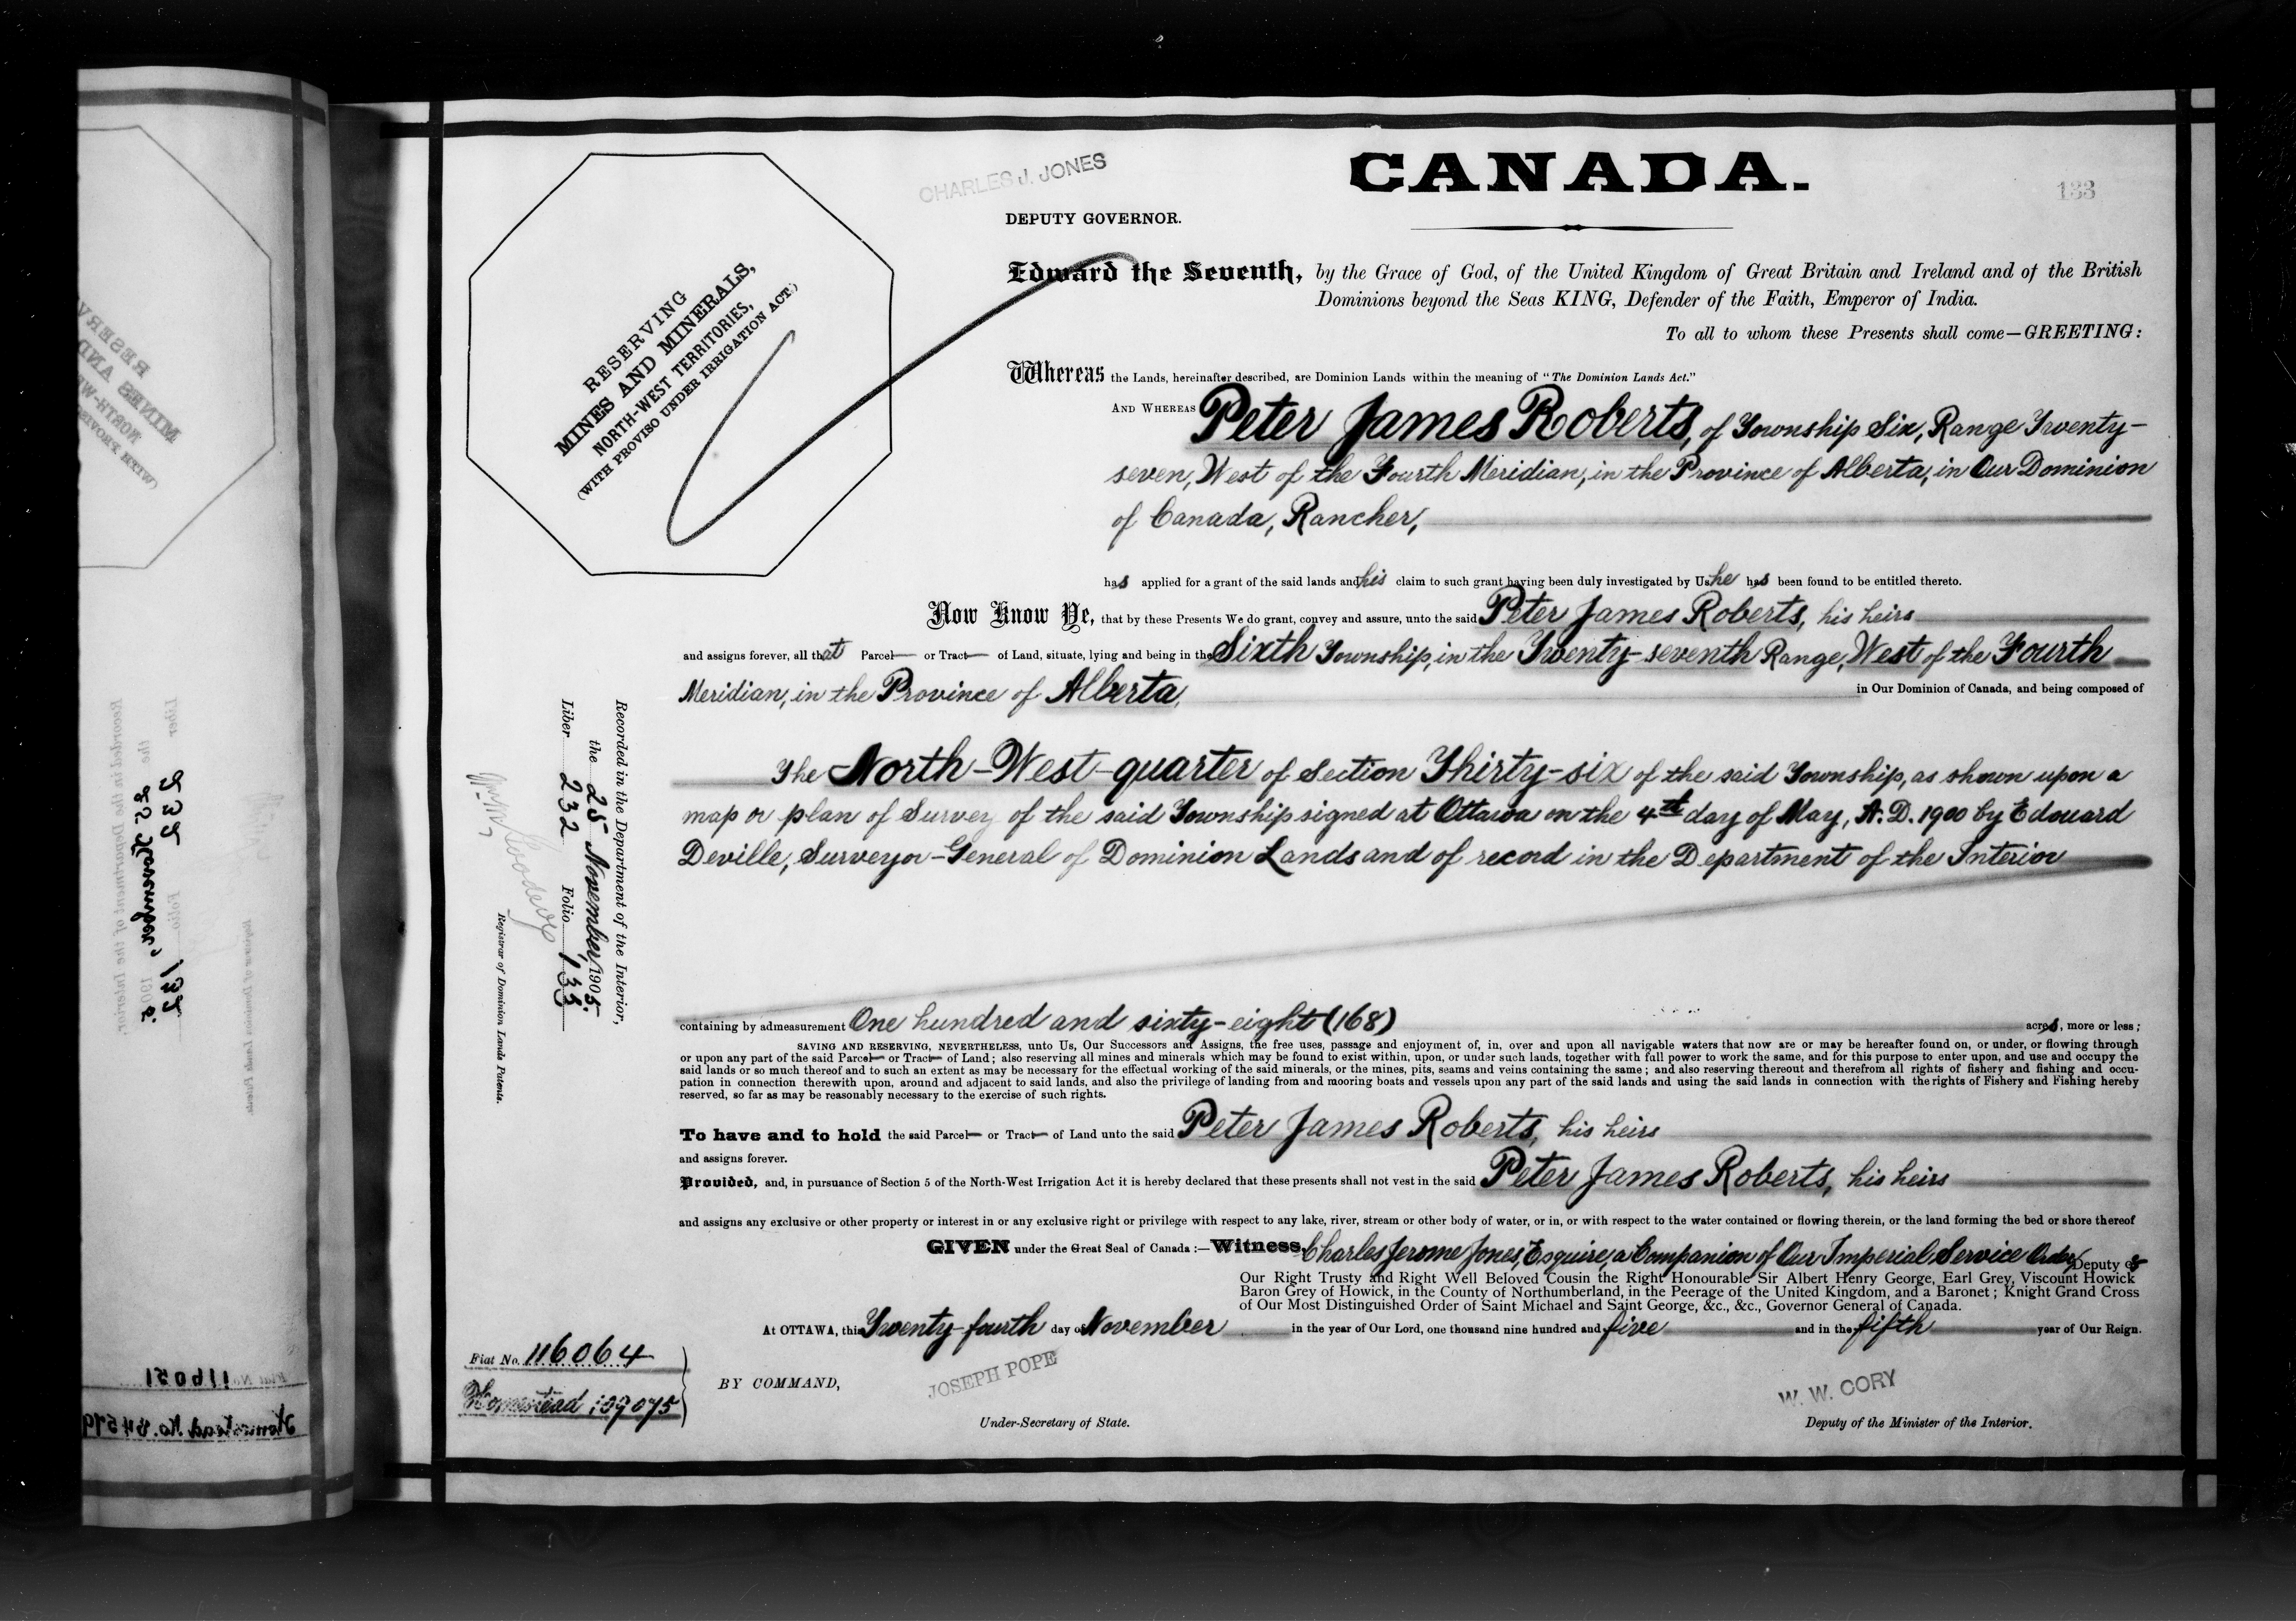 CHARLES J. JONES
CANADA.
133
DEPUTY GOVERNOR.
RESERVING
MINES AND MINERALS,
NORTH-WEST TERRITORIES,
(WITH PROVISO UNDER IRRIGATION ACT.)
Edward the Seventh, by the Grace of God, of the United Kingdom of Great Britain and Ireland and of the British
Dominions beyond the Seas KING, Defender of the Faith, Emperor of India.
To all to whom these Presents shall come—GREETING:
Whereas the Lands, hereinafter described, are Dominion Lands within the meaning of "The Dominion Lands Act."
AND WHEREAS Peter James Roberts, of Township Six, Range Twenty-
seven, West of the Fourth Meridian, in the Province of Alberta, in Our Dominion
of Canada, Rancher,
has applied for a grant of the said lands and his claim to such grant having been duly investigated by Us he has been found to be entitled thereto.
Now Know Ye, that by these Presents We do grant, convey and assure, unto the said Peter James Roberts, his heirs
and assigns forever, all that Parcel or Tract of Land, situate, lying and being in the Sixth Township, in the Twenty-seventh Range, West of the Fourth
Meridian, in the Province of Alberta, in Our Dominion of Canada, and being composed of
The North-West-quarter of Section Thirty-six of the said Township, as shown upon a
map or plan of Survey of the said Township signed at Ottawa on the 4th day of May, A.D. 1900 by Edouard
Deville, Surveyor-General of Dominion Lands and of record in the Department of the Interior
containing by admeasurement One hundred and sixty-eight (168) acres, more or less;
SAVING AND RESERVING, NEVERTHELESS, unto Us, Our Successors and Assigns, the free uses, passage and enjoyment of, in, over and upon all navigable waters that now are or may be hereafter found on, or under, or flowing through
or upon any part of the said Parcel or Tract of Land; also reserving all mines and minerals which may be found to exist within, upon, or under such lands, together with full power to work the same, and for this purpose to enter upon, and use and occupy the
said lands or so much thereof and to such an extent as may be necessary for the effectual working of the said minerals, or the mines, pits, seams and veins containing the same; and also reserving thereout and therefrom all rights of fishery and fishing and occu-
pation in connection therewith upon, around and adjacent to said lands, and also the privilege of landing from and mooring boats and vessels upon any part of the said lands and using the said lands in connection with the rights of Fishery and Fishing hereby
reserved, so far as may be reasonably necessary to the exercise of such rights.
To have and to hold the said Parcel or Tract of Land unto the said Peter James Roberts, his heirs
and assigns forever.
Provided, and, in pursuance of Section 5 of the North-West Irrigation Act it is hereby declared that these presents shall not vest in the said Peter James Roberts, his heirs
and assigns any exclusive or other property or interest in or any exclusive right or privilege with respect to any lake, river, stream or other body of water, or in, or with respect to the water contained or flowing therein, or the land forming the bed or shore thereof
GIVEN under the Great Seal of Canada:—Witness, Charles Jerome Jones, Esquire, a Companion of Our Imperial Service Order, Deputy of
Our Right Trusty and Right Well Beloved Cousin the Right Honourable Sir Albert Henry George, Earl Grey, Viscount Howick
Baron Grey of Howick, in the County of Northumberland, in the Peerage of the United Kingdom, and a Baronet; Knight Grand Cross
of Our Most Distinguished Order of Saint Michael and Saint George, &c., &c., Governor General of Canada.
At OTTAWA, this Twenty-fourth day of November in the year of Our Lord, one thousand nine hundred and five and in the fifth year of Our Reign.
BY COMMAND,
JOSEPH POPE
Under-Secretary of State.
W. W. CORY
Deputy of the Minister of the Interior.
Fiat No. 116064
Homestead 109075
Recorded in the Department of the Interior,
the 25 November, 1905.
Liber 232 Folio 133
Registrar of Dominion Lands Patents.